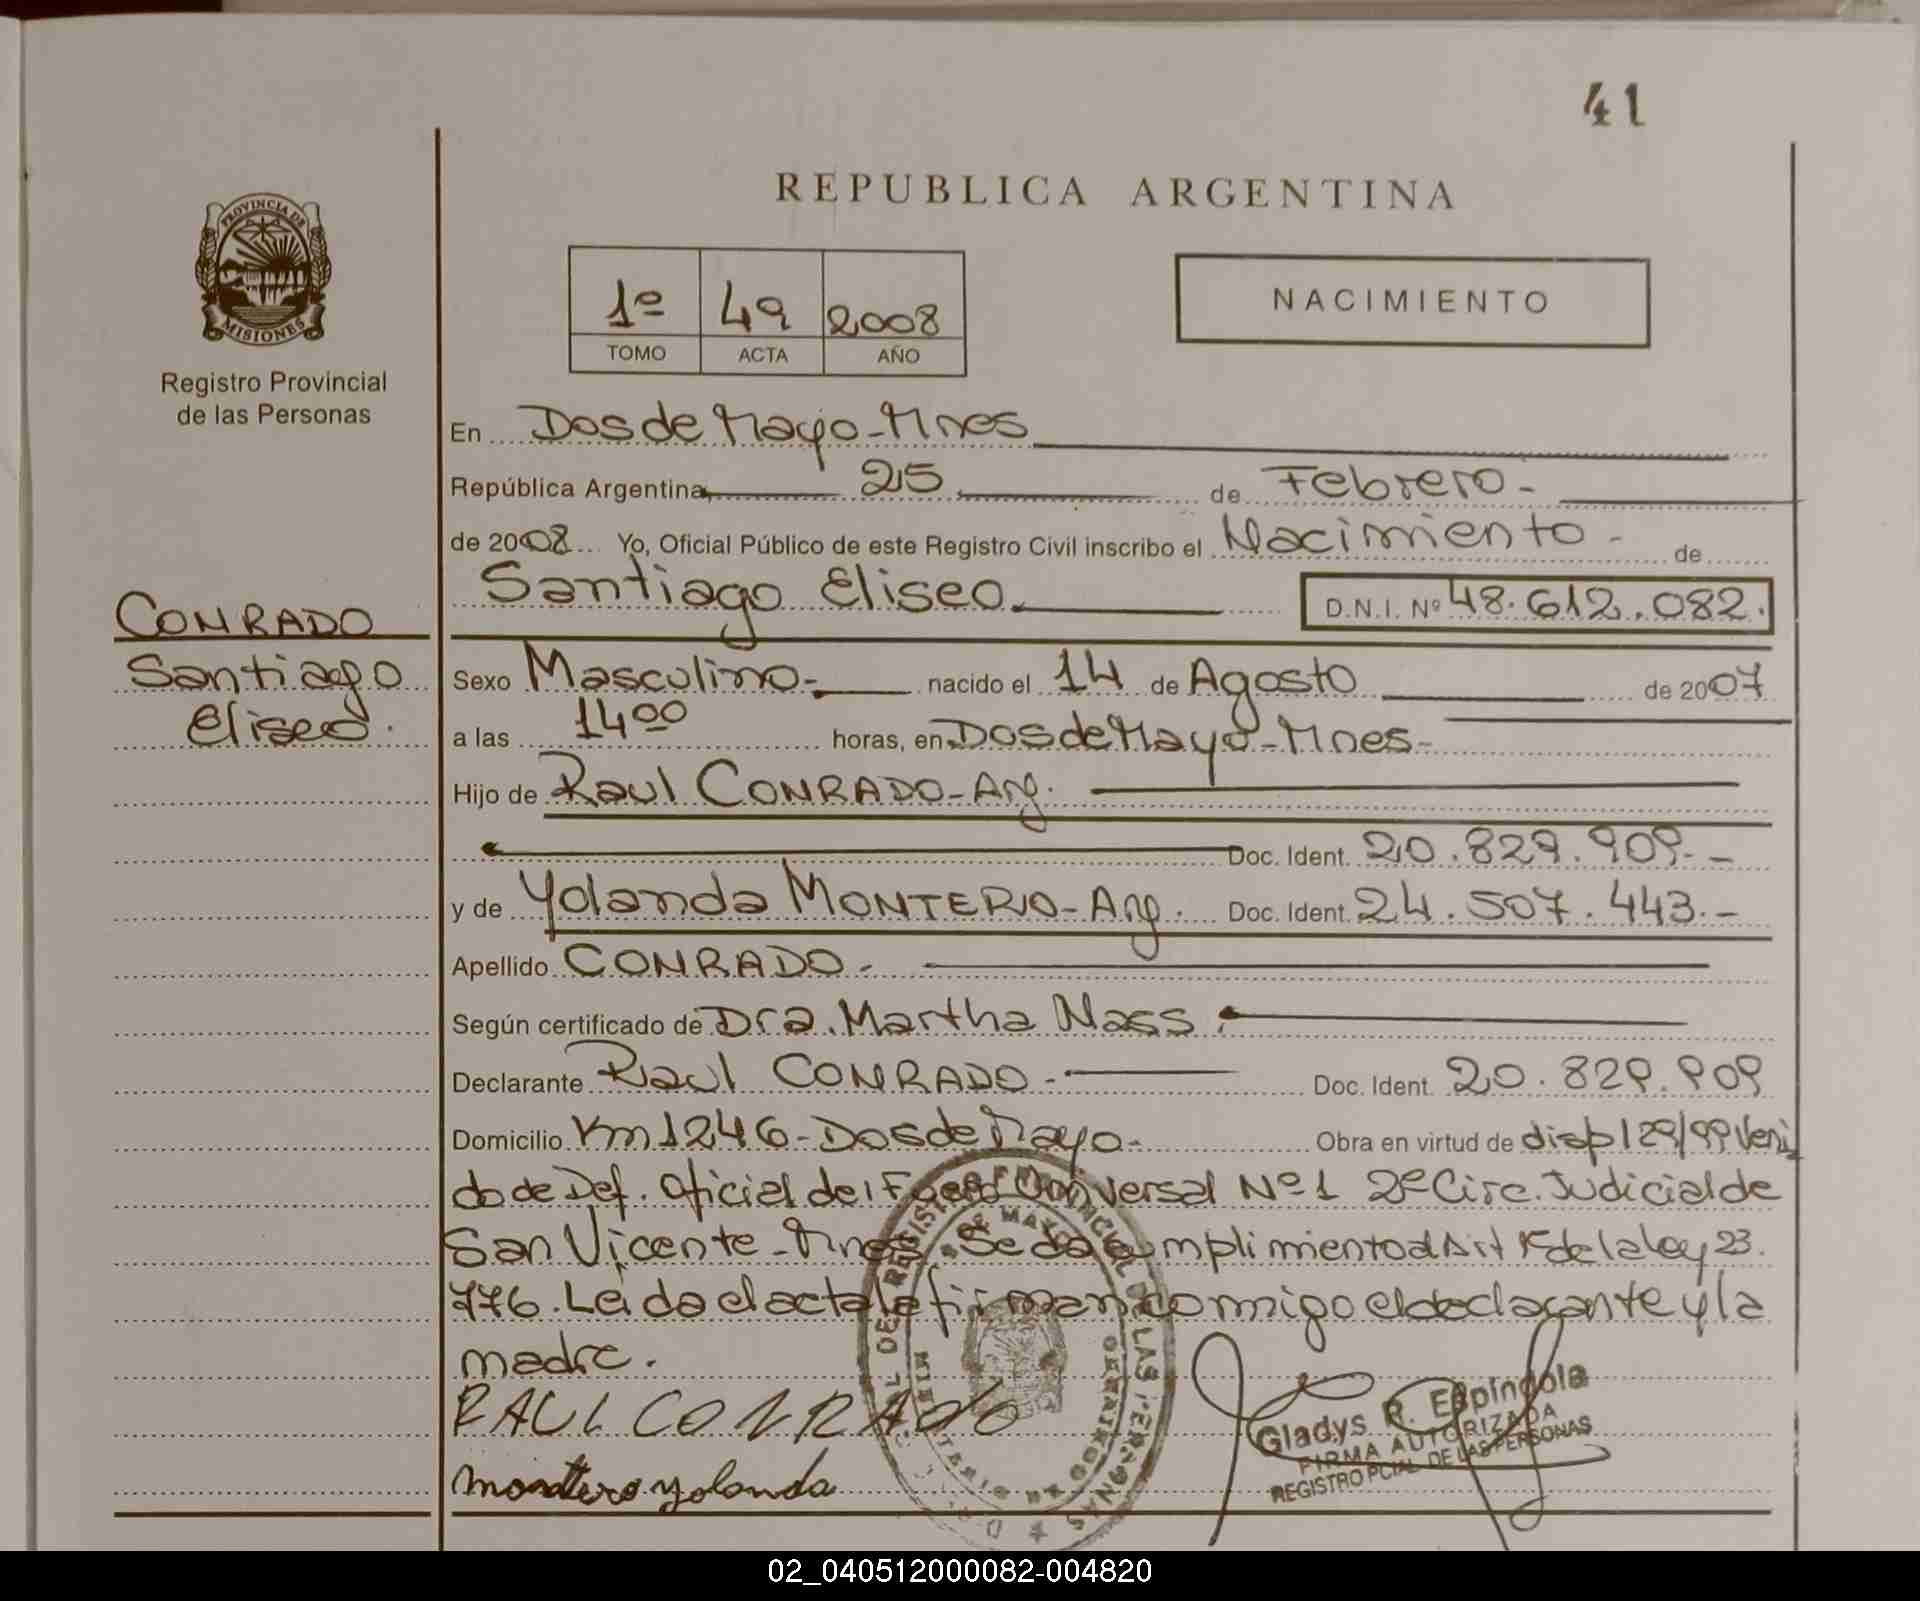 41
REPUBLICA ARGENTINA
PROVINCIA DE
MISIONES
Registro Provincial
de las Personas
1º 49 2008
TOMO ACTA AÑO
NACIMIENTO
En Dos de Mayo - Mnes
República Argentina, 25 de Febrero -
de 2008 Yo, Oficial Público de este Registro Civil inscribo el Nacimiento - de
Santiago Eliseo. D.N.I. Nº 48.612.082.
CONRADO
Santiago
Eliseo.
Sexo Masculino - nacido el 14 de Agosto de 2007
a las 14 00 horas, en Dos de Mayo - Mnes -
Hijo de Raul CONRADO - Arg.
Doc. Ident. 20.829.909. -
y de Yolanda MONTERO - Arg. Doc. Ident. 24.507.443. -
Apellido CONRADO -
Según certificado de Dra. Martha Nass.
Declarante Raul CONRADO - Doc. Ident. 20.829.909
Domicilio Km 1246 - Dos de Mayo - Obra en virtud de disp 129/99 Veni
do de Def. Oficial del Fuero Universal Nº 1 2º Circ. Judicial de
San Vicente - Mnes. Se da cumplimiento al Art 1º de la ley 23.
776. Leida el acta la firman conmigo el declarante y la
madre.
RAUL CONRADO
Montero Yolanda
Gladys R. Espindola
FIRMA AUTORIZADA
REGISTRO PCIAL DE LAS PERSONAS
02_040512000082-004820